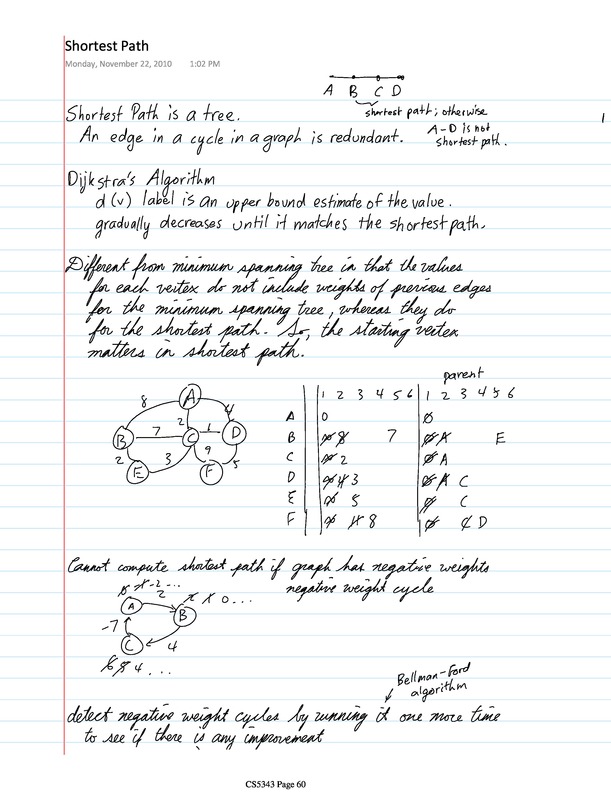 Shortest Path
Monday, November 22, 2010 1:02 PM
A B C D
shortest path; otherwise
A-D is not
shortest path.
1
Shortest Path is a tree.
An edge in a cycle in a graph is redundant.
Dijkstra's Algorithm
d(v) label is an upper bound estimate of the value.
gradually decreases until it matches the shortest path.
Different from minimum spanning tree in that the values
for each vertex do not include weights of previous edges
for the minimum spanning tree, whereas they do
for the shortest path. So, the starting vertex
matters in shortest path.
parent
1 2 3 4 5 6 1 2 3 4 5 6
A 0 ∅
B ∞ 8 7 ∅ A E
C ∞ 2 ∅ A
D ∞ 4 3 ∅ A C
E ∞ 5 ∅ C
F ∞ 11 8 ∅ C D
A
8
2
4
B
7
C
1
D
2
3
9
5
E
F
Cannot compute shortest path if graph has negative weights
negative weight cycle
-2 ...
A
2
B
0 ...
-7
C
4
4 ...
Bellman-Ford
algorithm
detect negative weight cycles by running it one more time
to see if there is any improvement
CS5343 Page 60